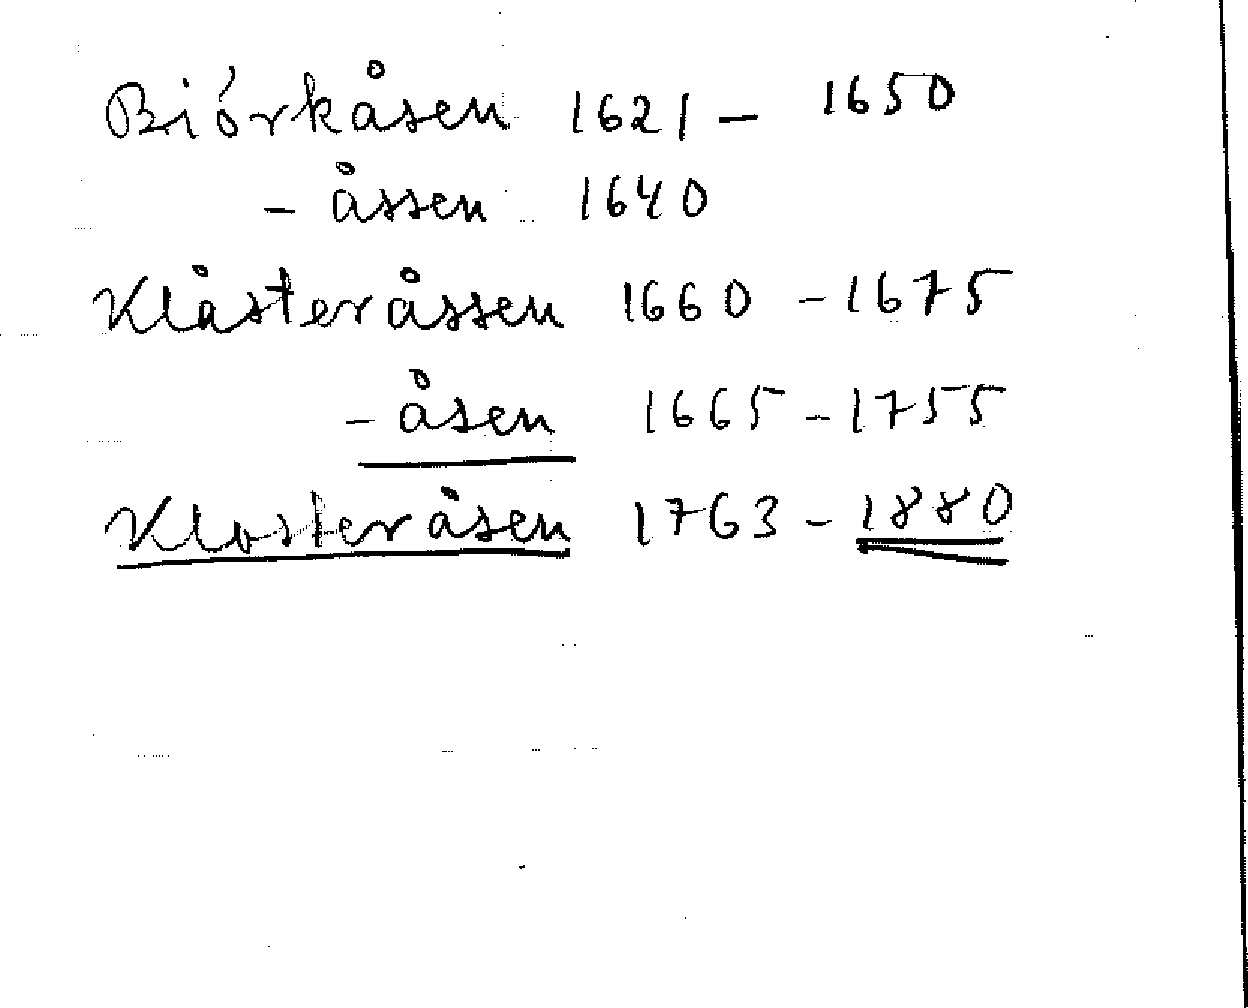 Biórkåsen 1621 - 1650
- åssen 1640
Klåsteråssen 1660 - 1675
- åsen 1665 - 1755
Klosteråsen 1763 - 1880